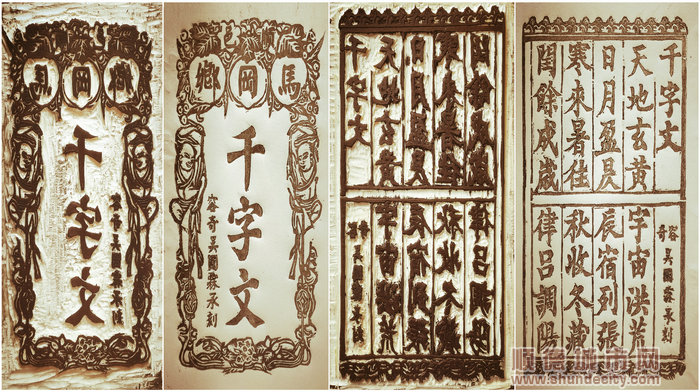 馬岡鄉
千字文
容奇吳國霖承刻
馬岡鄉
千字文
容奇吳國霖承刻
千字文
天地玄黃
日月盈昃
寒來暑往
閏餘成歲
容奇吳國霖承刻
宇宙洪荒
辰宿列張
秋收冬藏
律呂調陽
千字文
天地玄黃
日月盈昃
寒來暑往
閏餘成歲
容奇吳國霖承刻
宇宙洪荒
辰宿列張
秋收冬藏
律呂調陽
顺德城市网
www.shundecity.com